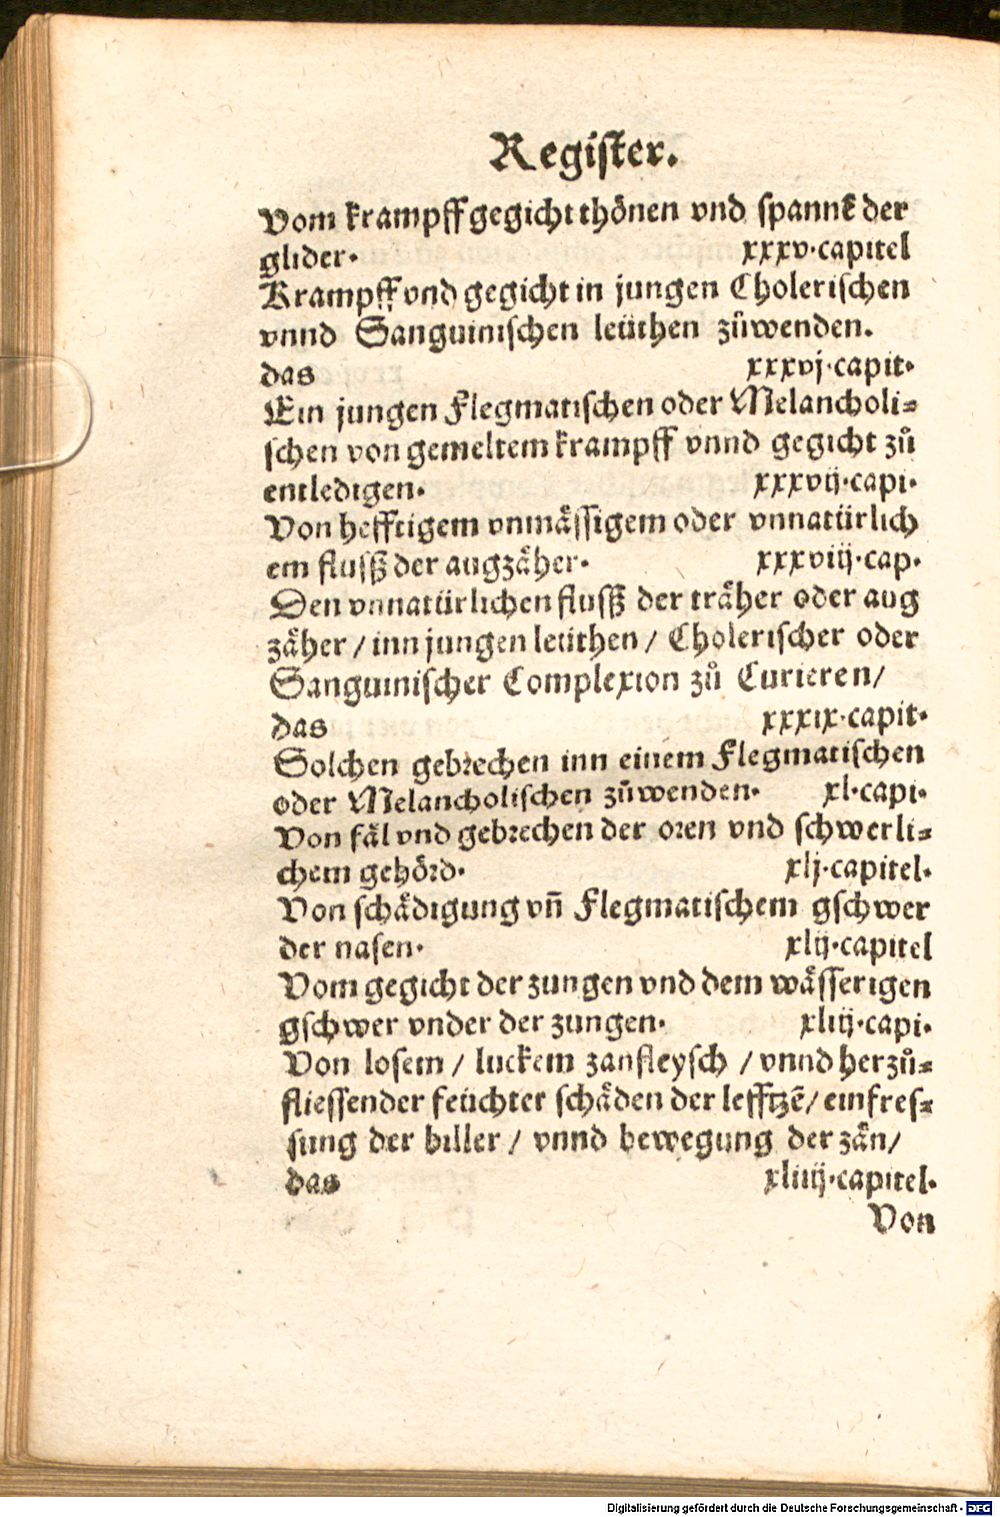 Register.
Vom krampff gegicht thönen vnd spannē der
glider. xxxv.capitel
Krampff vnd gegicht in jungen Cholerischen
vnnd Sanguinischen leüthen zůwenden.
das xxxvj.capit.
Ein jungen Flegmatischen oder Melancholi-
schen von gemeltem krampff vnnd gegicht zů
entledigen. xxxvij.capi.
Von hefftigem vnmässigem oder vnnatürlich
em flusß der augzäher. xxxviij.cap.
Den vnnatürlichen flusß der träher oder aug
zäher / inn jungen leüthen / Cholerischer oder
Sanguinischer Complexion zů Curieren/
das xxxix.capit.
Solchen gebrechen inn einem Flegmatischen
oder Melancholischen zůwenden. xl.capi.
Von fäl vnd gebrechen der oren vnd schwerli-
chem gehörd. xlj.capitel.
Von schädigung vñ Flegmatischem gschwer
der nasen. xlij.capitel
Vom gegicht der zungen vnd dem wässerigen
gschwer vnder der zungen. xliij.capi.
Von losem / luckem zanfleysch / vnnd herzů-
fliessender feüchter schäden der lefftzē/ einfres-
sung der biller / vnnd bewegung der zän/
das xliiij.capitel.
Von
Digitalisierung gefördert durch die Deutsche Forschungsgemeinschaft - DFG